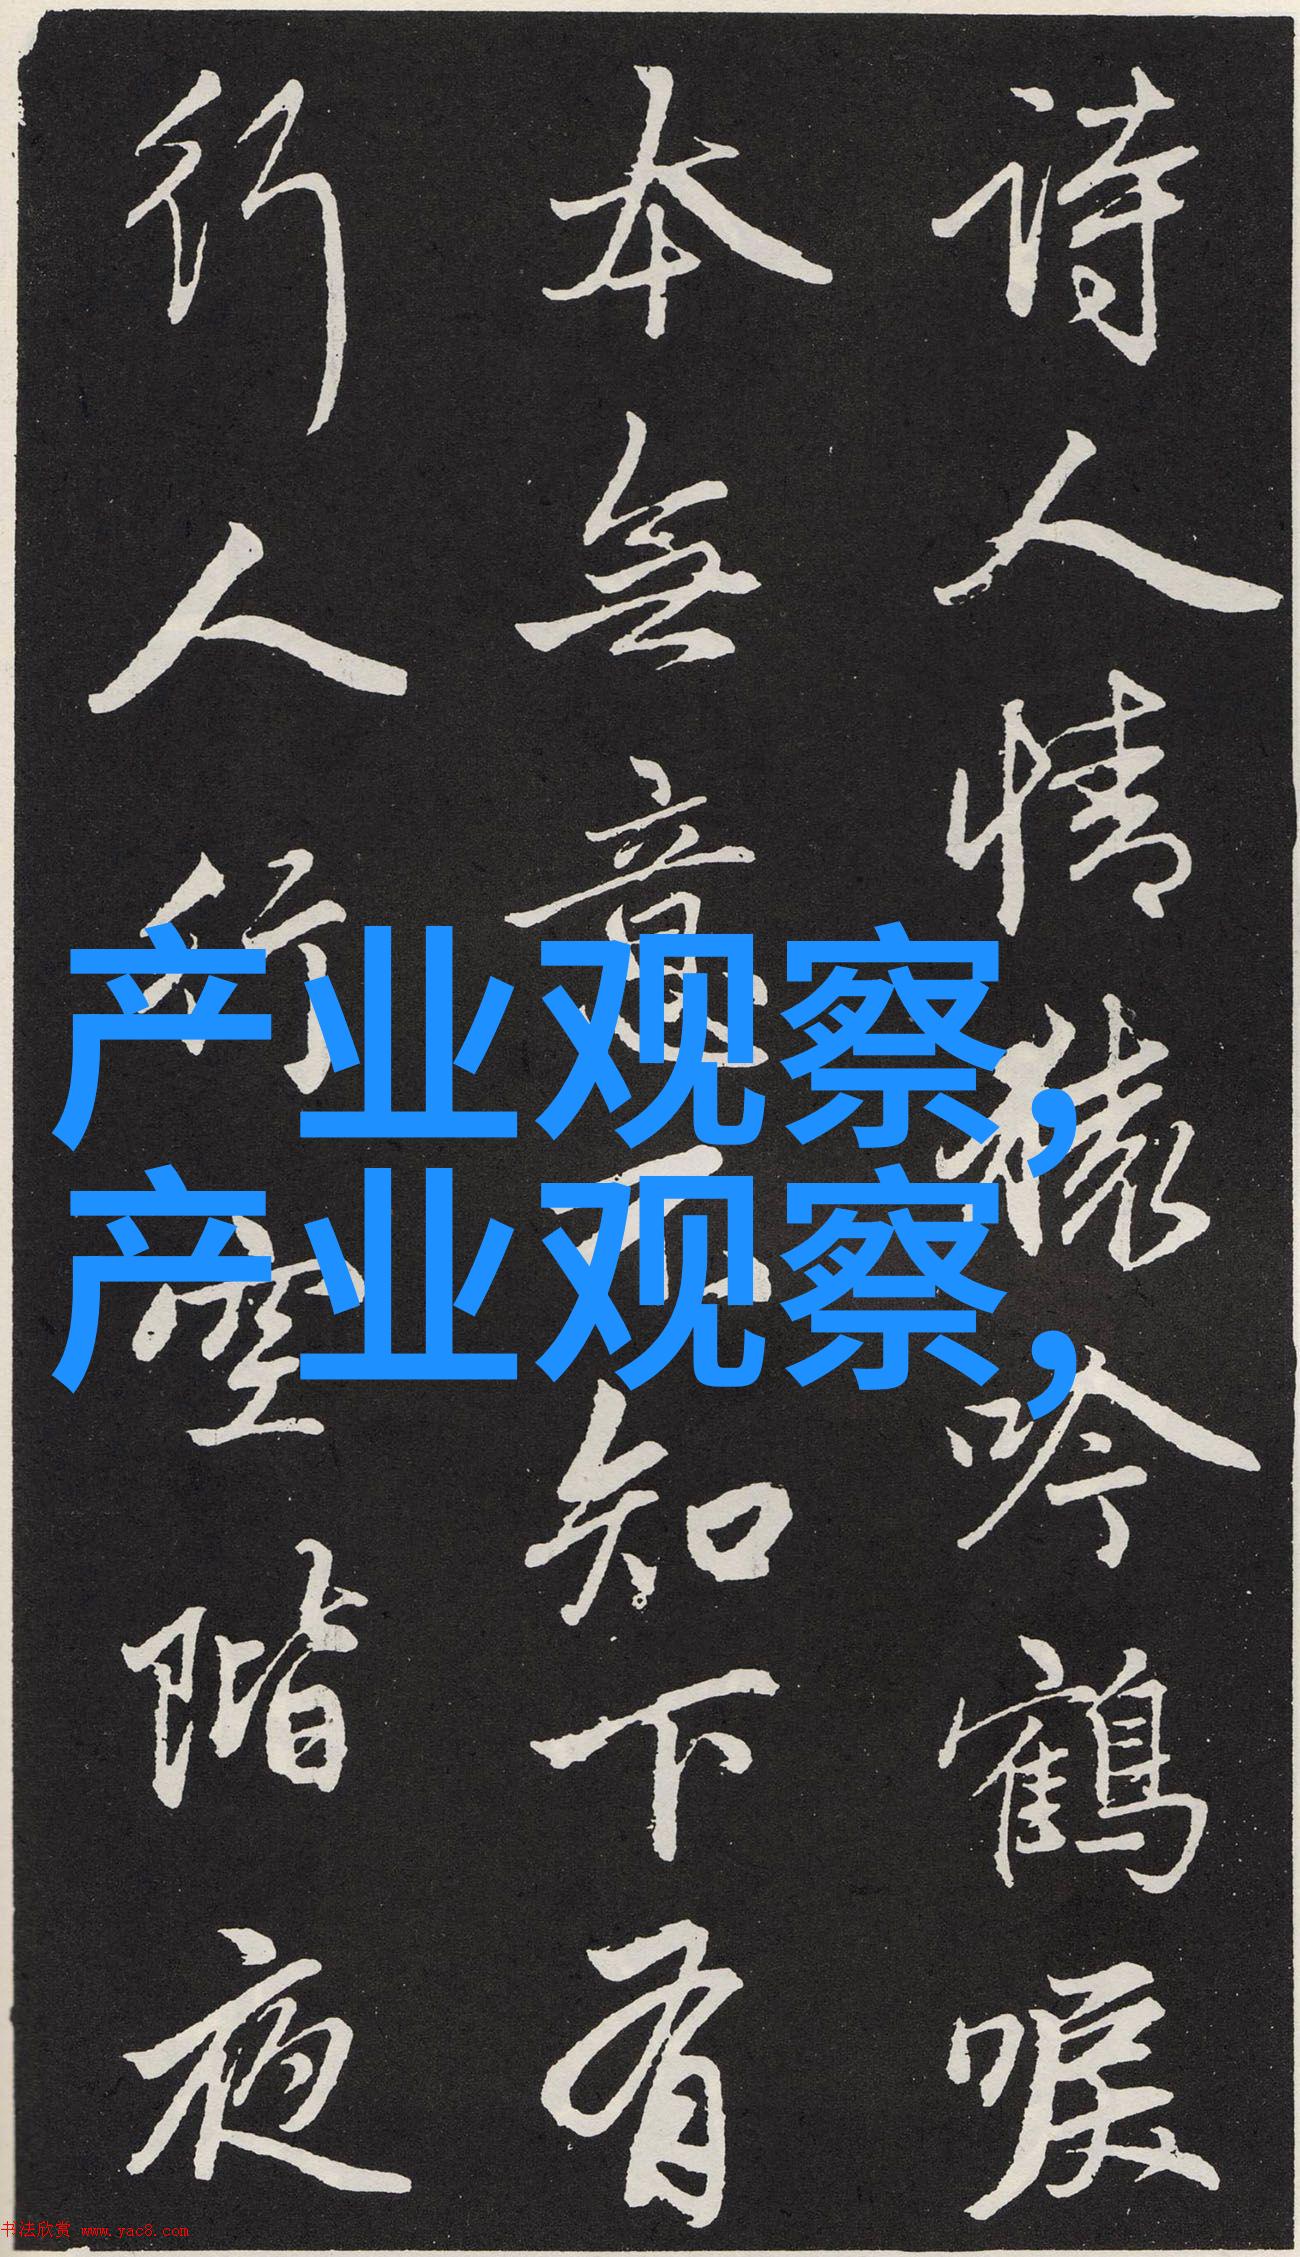 诗人情猿吟鹤唳
本无意不知下有
行人行空阶夜
产业观察,
产业观察,
书法欣赏 www.yac8.com